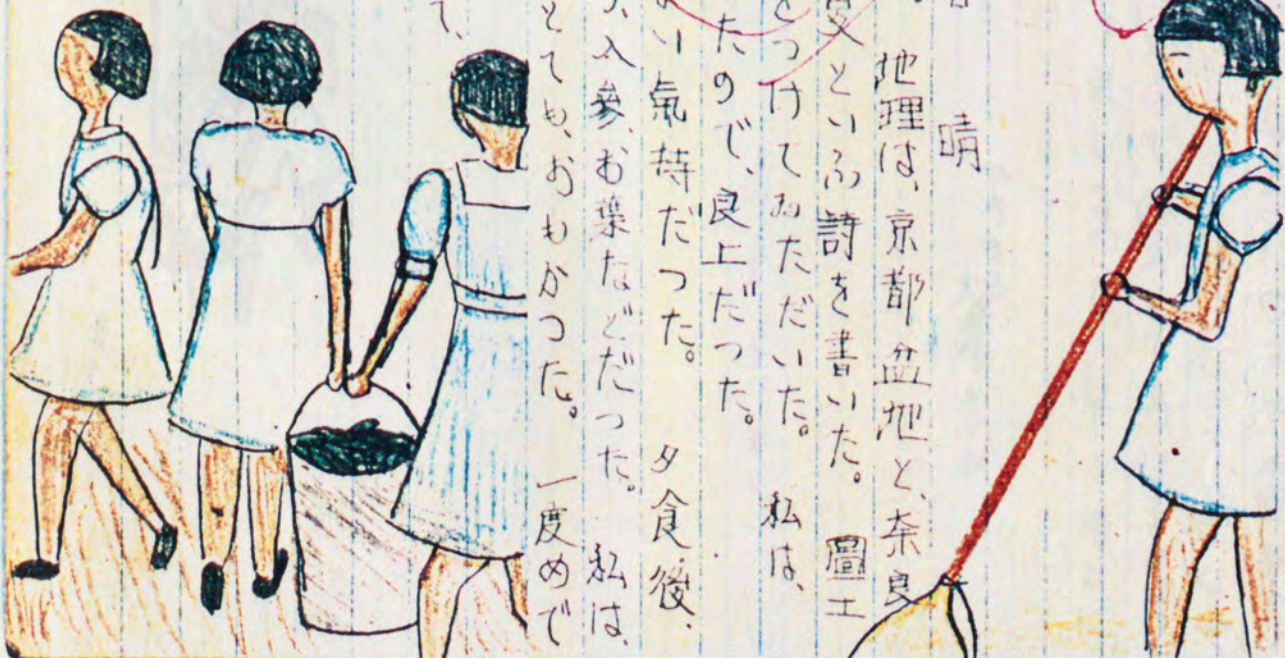 晴
地理は、京都盆地と、奈良
といふ詩を書いた。 圖工
つけてゐただいた。 私は、
たので、良上だつた。
い氣持だつた。 夕食後、
人參、お葉などだつた。 私は、
とても、おもかつた。 一度めで
て、